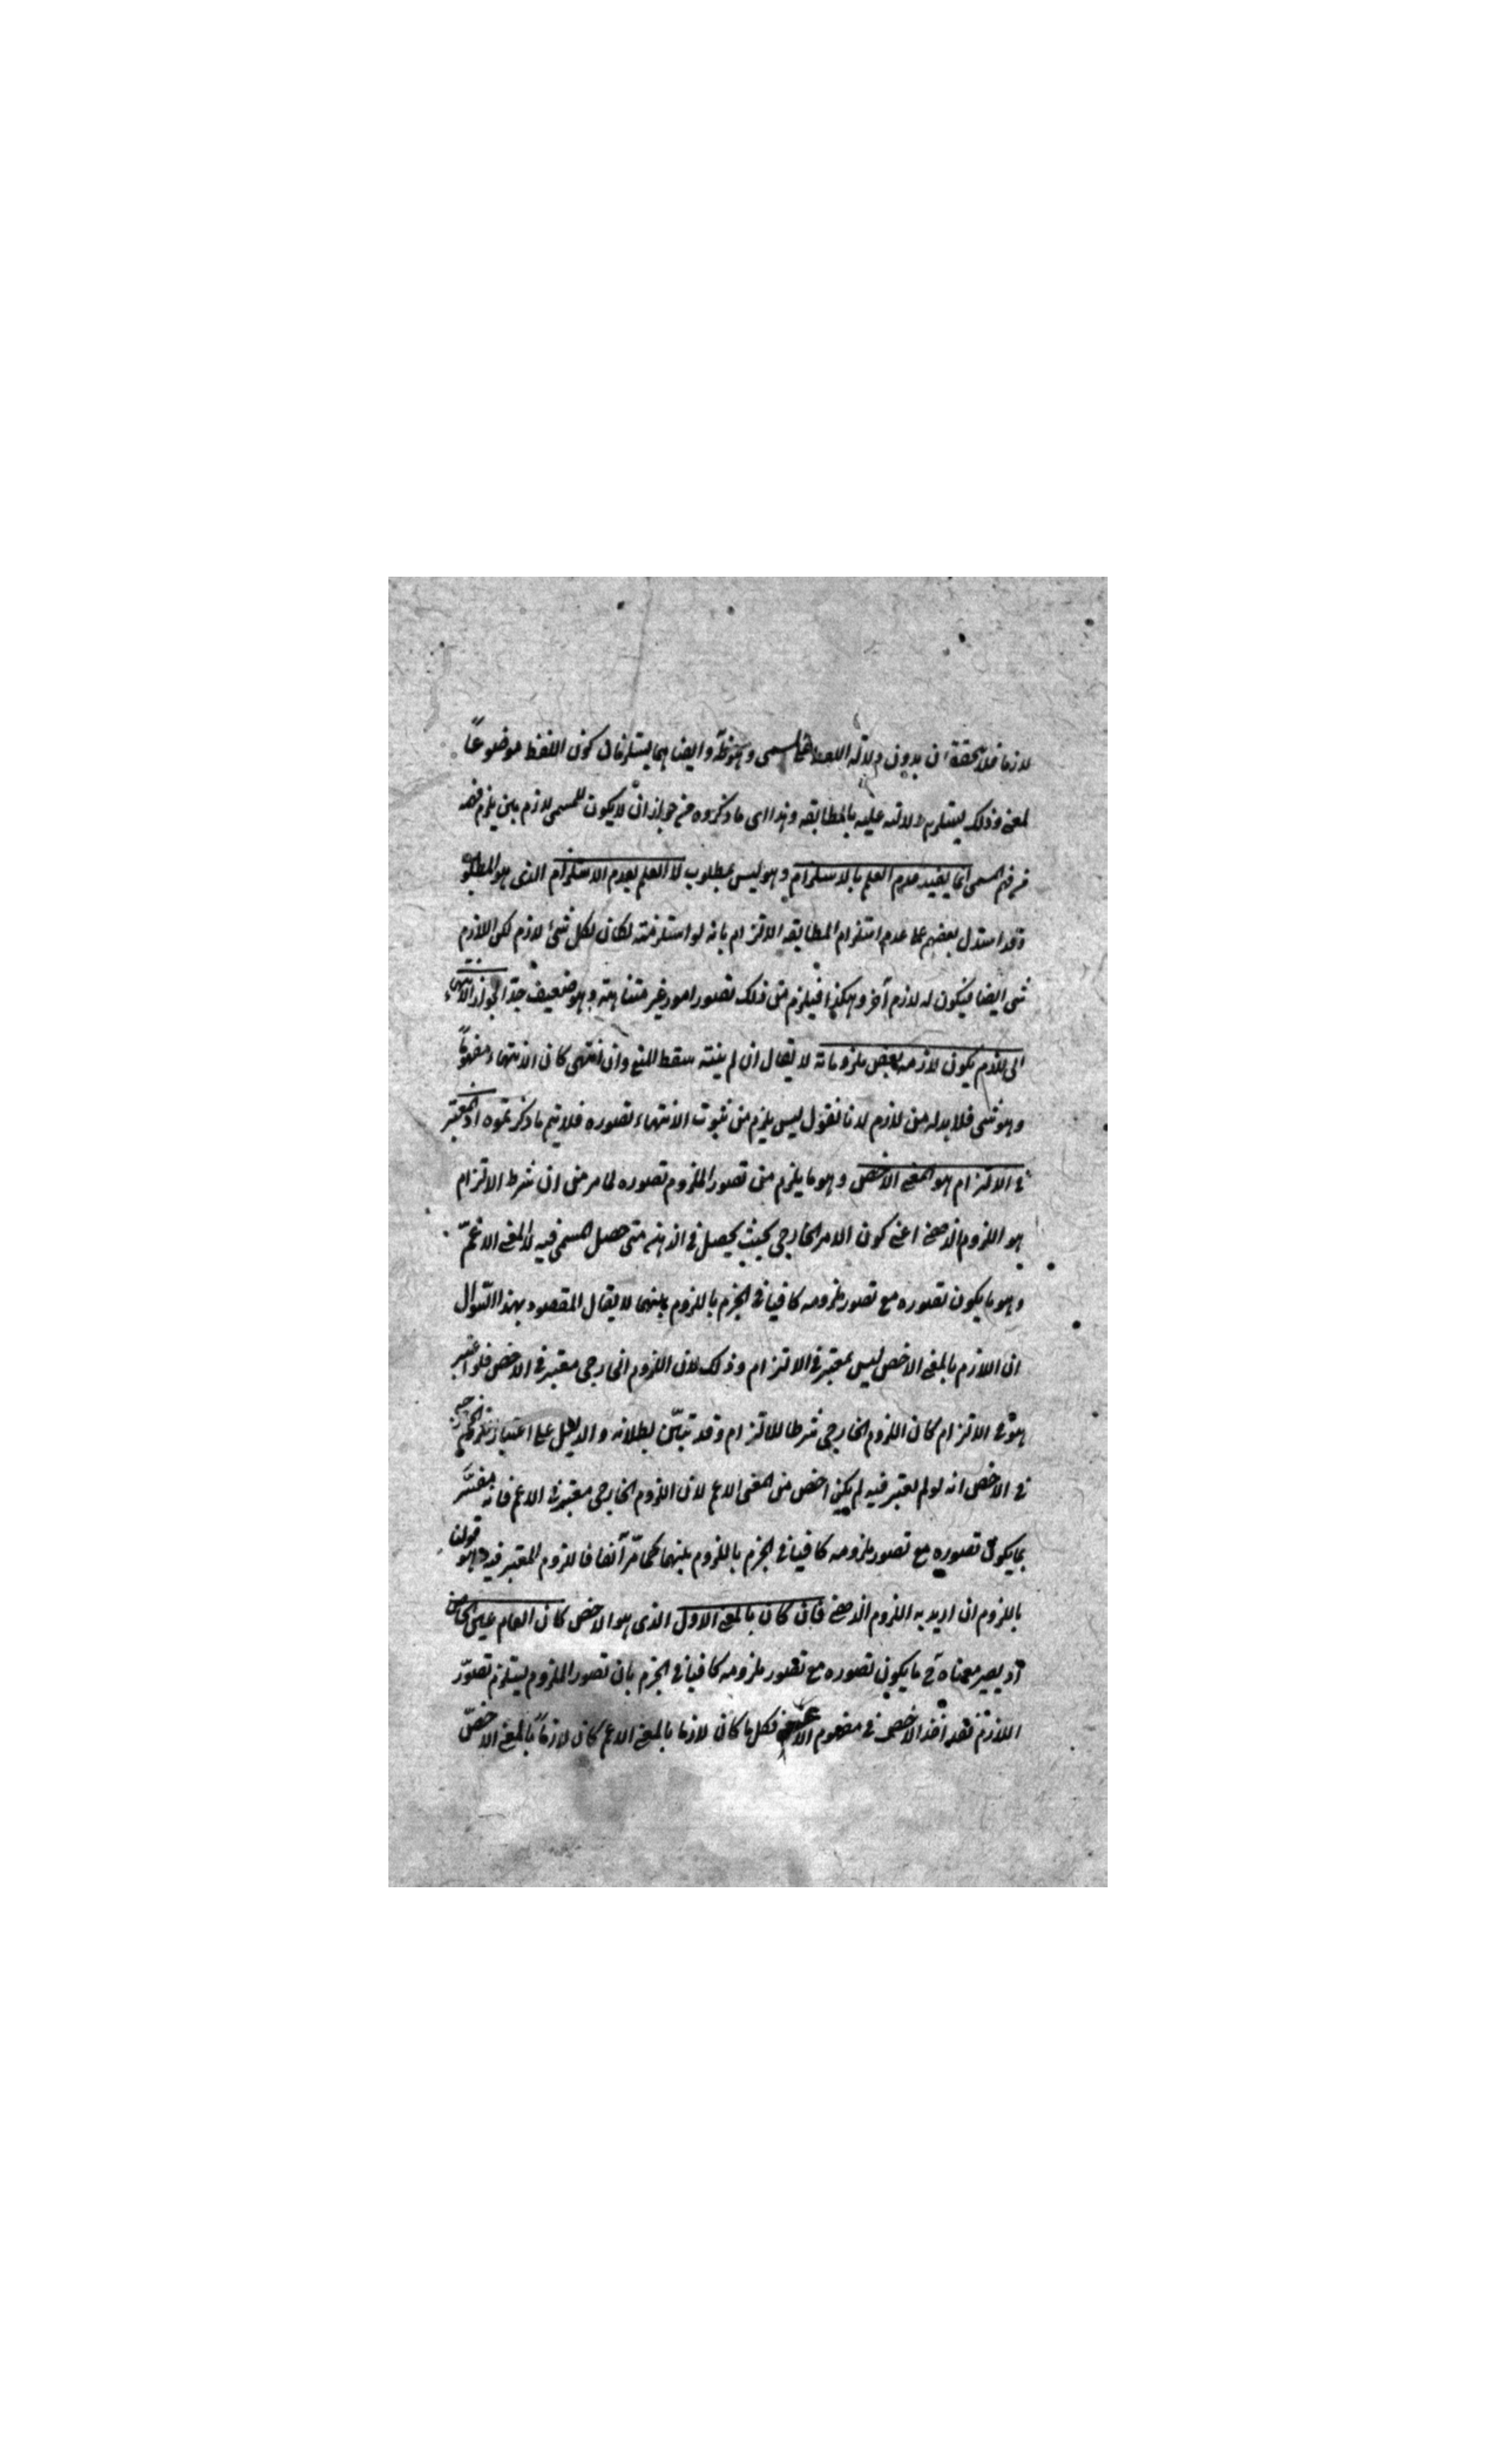 لازما فلا تحققان بدون دلالة اللفظ على المسمى وهو ظ وايضا هما يستلزمان كون اللفظ موضوعاً
لمعنى وذلك يستلزم دلالته عليه بالمطابقة وهذا اى ما ذكروه من جواز ان لا يكون للمسمى لازم بين يلزم فهمه
من فهم المسمى انما يفيد عدم العلم بالاستلزام وهو ليس بمطلوب لا العلم بعدم الاستلزام الذى هو المطلوب
وقد استدل بعضهم على عدم استلزام المطابقة الالتزام بانه لو استلزمته لكان لكل شئ لازم لكن اللازم
شى ايضا فيكون له لازم آخر وهكذا فيلزم من ذلك تصور امور غير متناهية وهو ضعيف جدّا لجواز الانتهاء
الى لازم يكون لازمه بعض ملزوماته لا يقال ان لم ينته سقط المنع وان انتهى كان الانتهاء مفهوماً
وهو شى فلا بد له من لازم لانا نقول ليس يلزم من ثبوت الانتهاء تصوره فلا يتم ما ذكرتموه اذ المعتبر
فى الالتزام هو المعنى الاخص وهو ما يلزم من تصور الملزوم تصوره لما مر من ان شرط الالتزام
هو اللزوم الذهنى اعنى كون الامر الخارجى بحيث يحصل فى الذهن متى حصل المسمى فيه لا المعنى الاعمّ
وهو ما يكون تصوره مع تصور ملزومه كافيا فى الجزم باللزوم بينهما لا يقال المقصود بهذا السّوال
ان اللازم بالمعنى الاخص ليس بمعتبر فى الالتزام وذلك لان اللزوم الخارجى معتبر فى الاخص فلو اعتبر
هو فى الالتزام كان اللزوم الخارجى شرطا للالتزام وقد تبيّن بطلانه والدليل على اعتبار اللزوم الخارجى
فى الاخص انه لو لم يعتبر فيه لم يكن اخص من المعنى الاعم لان اللزوم الخارجى معتبر فى الاعم فانه مفسّر
بما يكون تصوره مع تصور ملزومه كافيا فى الجزم باللزوم بينهما كما مّر آنفا فاللزوم المعتبر فيه وهو قولنا
باللزوم ان اريد به اللزوم الذهنى فان كان بالمعنى الاول الذى هو الاخص كان العام عين الخاص
اذ يصير معناه ح ما يكون تصوره مع تصور ملزومه كافيا فى الجزم بان تصور الملزوم يستلزم تصوّر
اللازم فقد اخذ الاخص فى مفهوم الاعم فكل ما كان لازما بالمعنى الاعم كان لازماً بالمعنى الاخصّ